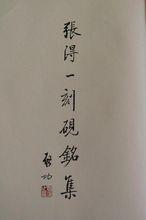 張得一刻硯銘集
啟功